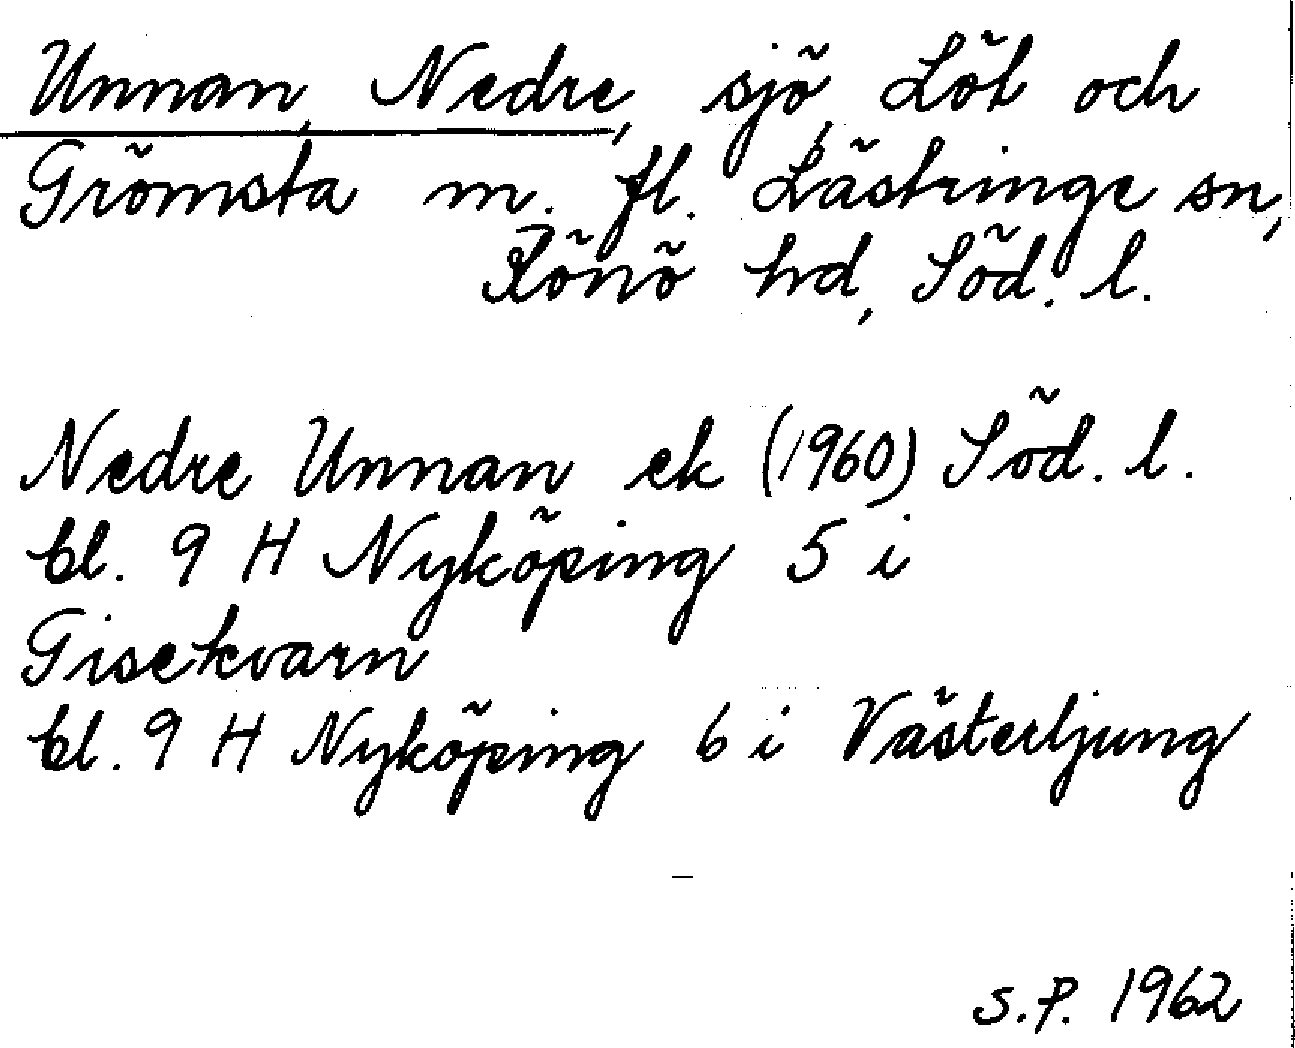 Unnan, Nedre, sjö, Löt och
Grömsta m. fl. Lästringe sn,
Rönö hd, Söd. l.
Nedre Unnan ek (1960) Söd. l.
bl. 9 H Nyköping 5 i
Gisekvarn
bl. 9 H Nyköping 6 i Västerljung
S.P. 1962